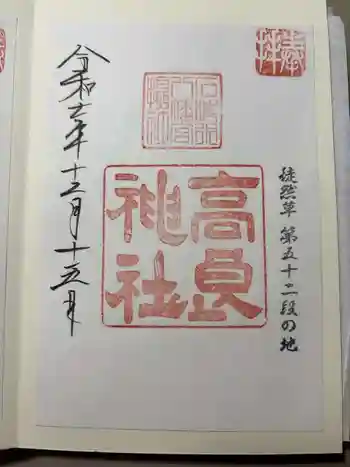 奉拝
徒然草 第五十二段の地
石清水
八幡宮
摂社
高良
神社
令和七年十二月十五日